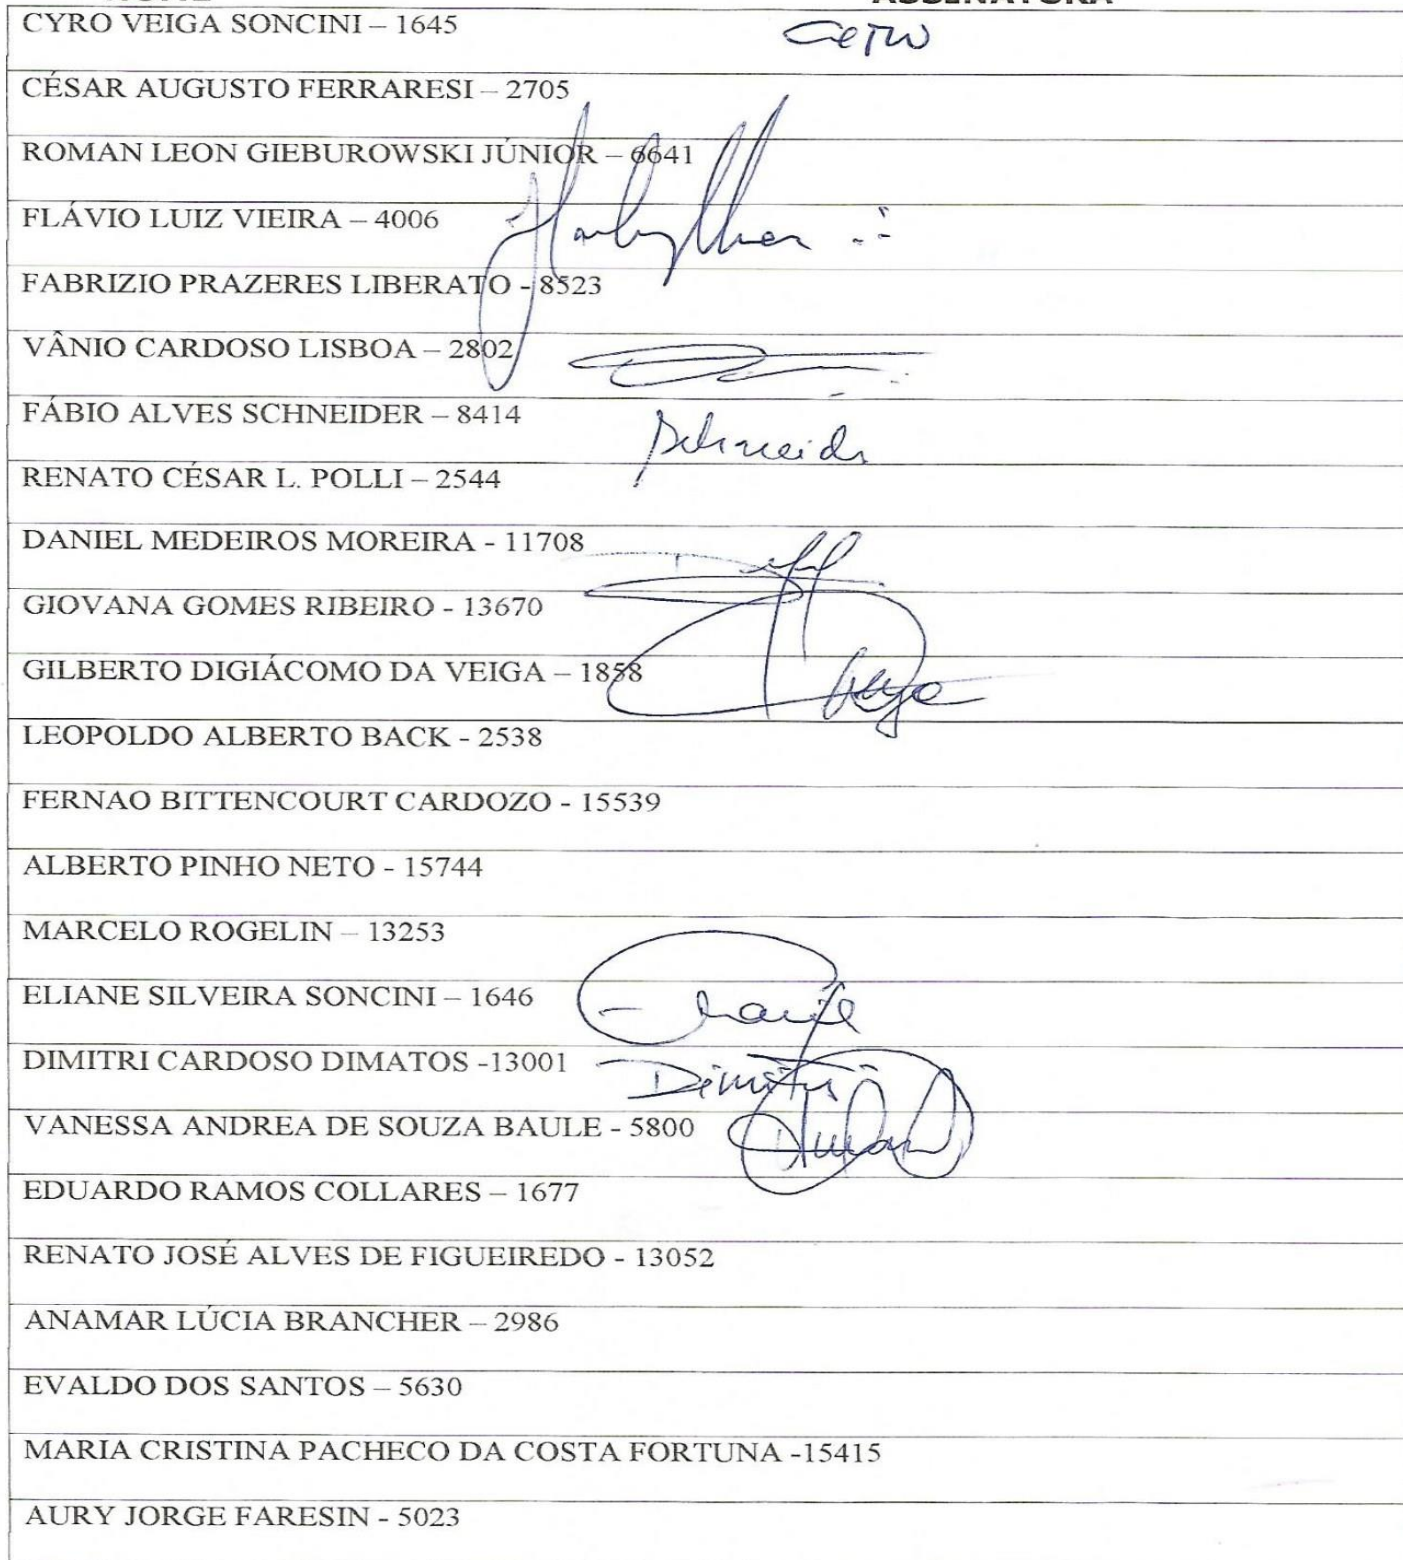 CYRO VEIGA SONCINI – 1645
CÉSAR AUGUSTO FERRARESI – 2705
ROMAN LEON GIEBUROWSKI JÚNIOR – 6641
FLÁVIO LUIZ VIEIRA – 4006
FABRIZIO PRAZERES LIBERATO - 8523
VÂNIO CARDOSO LISBOA – 2802
FÁBIO ALVES SCHNEIDER – 8414
RENATO CÉSAR L. POLLI – 2544
DANIEL MEDEIROS MOREIRA - 11708
GIOVANA GOMES RIBEIRO - 13670
GILBERTO DIGIÁCOMO DA VEIGA – 1858
LEOPOLDO ALBERTO BACK - 2538
FERNAO BITTENCOURT CARDOZO - 15539
ALBERTO PINHO NETO - 15744
MARCELO ROGELIN – 13253
ELIANE SILVEIRA SONCINI – 1646
DIMITRI CARDOSO DIMATOS -13001
VANESSA ANDREA DE SOUZA BAULE - 5800
EDUARDO RAMOS COLLARES – 1677
RENATO JOSÉ ALVES DE FIGUEIREDO - 13052
ANAMAR LÚCIA BRANCHER – 2986
EVALDO DOS SANTOS – 5630
MARIA CRISTINA PACHECO DA COSTA FORTUNA -15415
AURY JORGE FARESIN - 5023